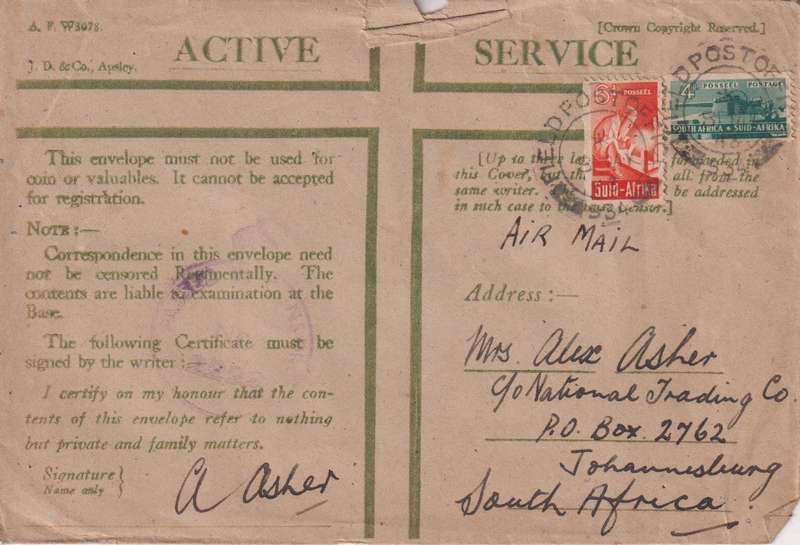 A. F. W3078.
[Crown Copyright Reserved.]
J. D. & Co., Apsley.
ACTIVE SERVICE
FIELD POST OFFICE
POSSEEL
Suid-Afrika
4
POSSEEL POSTAGE
SOUTH AFRICA SUID-AFRIKA
This envelope must not be used for
coin or valuables. It cannot be accepted
for registration.
NOTE :—
Correspondence in this envelope need
not be censored Regimentally. The
contents are liable to examination at the
Base.
The following Certificate must be
signed by the writer :—
I certify on my honour that the con-
tents of this envelope refer to nothing
but private and family matters.
Signature
Name only
A Asher
[Up to forwarded in
this Cover, all from the
same writer. be addressed
in such case to the Censor.]
AIR MAIL
Address :—
Mrs. Alex Asher
c/o National Trading Co.
P.O. Box 2762
Johannesburg
South Africa.